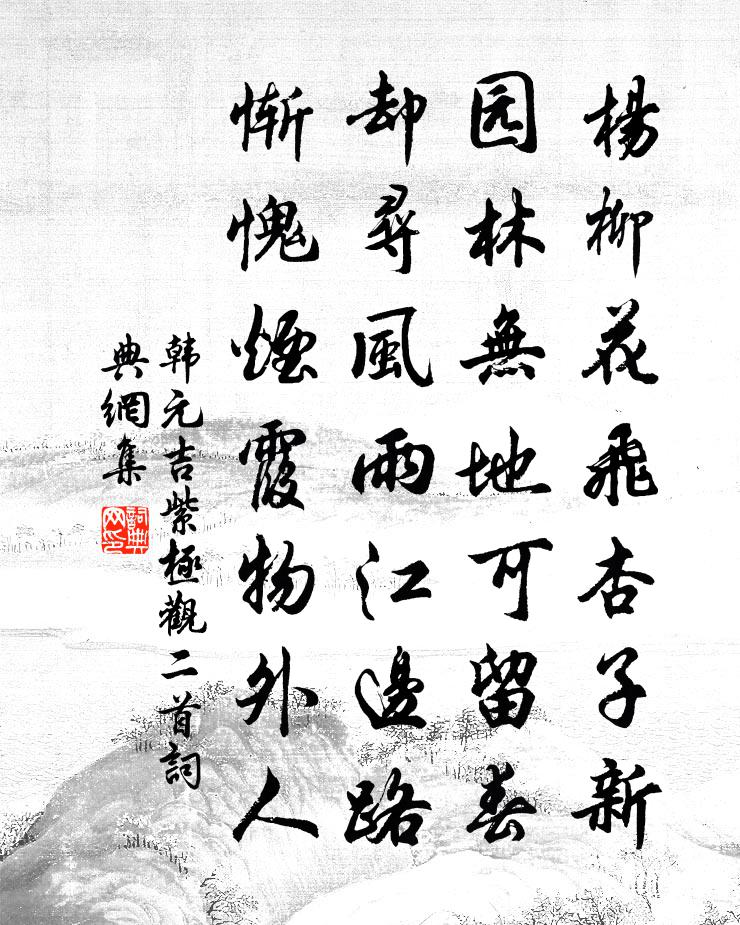 楊柳花飛杏子新
园林無地可留春
却尋風雨江邊路
慚愧煙霞物外人
韩元吉紫極觀二首詞
典網集
詞典网印